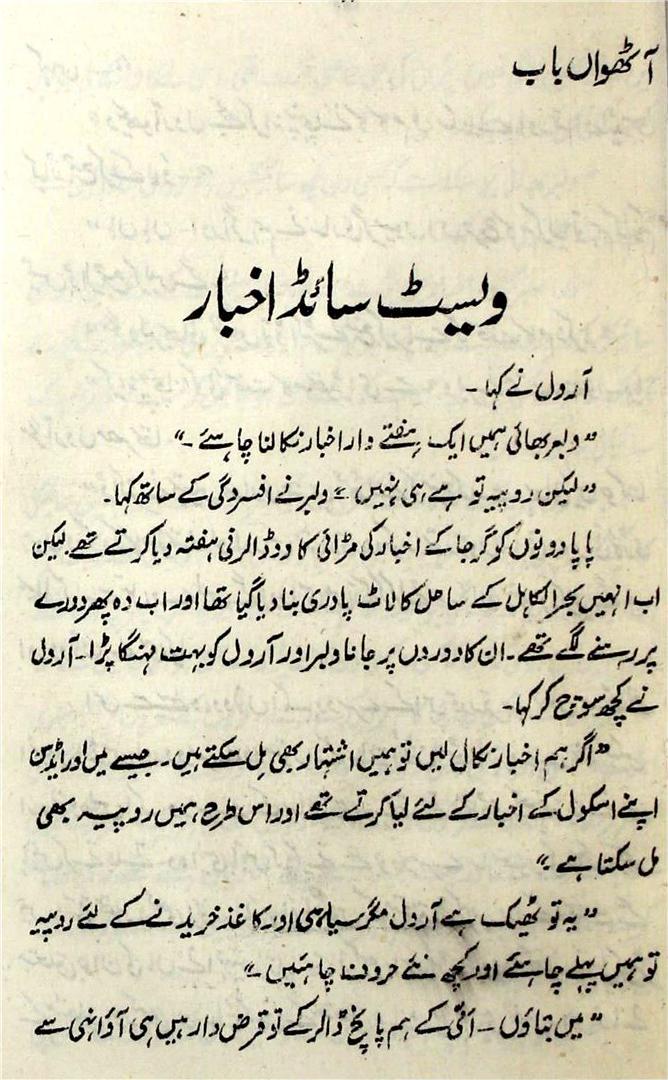 آٹھواں باب
ویسٹ سائڈ اخبار
آرول نے کہا۔
”ولبر بھائی ہمیں ایک ہفتے وار اخبار نکالنا چاہئے۔“
”لیکن روپیہ تو ہے ہی نہیں“ ولبر نے افسردگی کے ساتھ کہا۔
پاپا دونوں کو گرجا کے اخبار کی مڑائی کا دو ڈالر فی ہفتہ دیا کرتے تھے۔ لیکن
اب انہیں بحرالکاہل کے ساحل کا لاٹ پادری بنا دیا گیا تھا اور اب وہ پھر دورے
پر رہنے لگے تھے۔ ان کا دوروں پر جانا ولبر اور آرول کو بہت مہنگا پڑا۔ آرول
نے کچھ سوچ کر کہا۔
”اگر ہم اخبار نکال لیں تو ہمیں اشتہار بھی مل سکتے ہیں۔ جیسے میں اور ایڈسن
اپنے اسکول کے اخبار کے لئے لیا کرتے تھے اور اس طرح ہمیں روپیہ بھی
مل سکتا ہے۔“
”یہ تو ٹھیک ہے آرول مگر سیاہی اور کاغذ خریدنے کے لئے روپیہ
تو ہمیں پہلے چاہئے اور کچھ نئے حروف چاہئیں۔“
”میں بتاؤں۔ آئی کے ہم پانچ ڈالر کے تو قرض دار ہیں ہی آؤ انہی سے